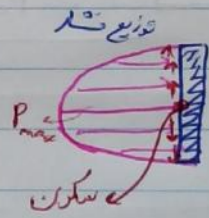 توزیع فشار
P max
سکون